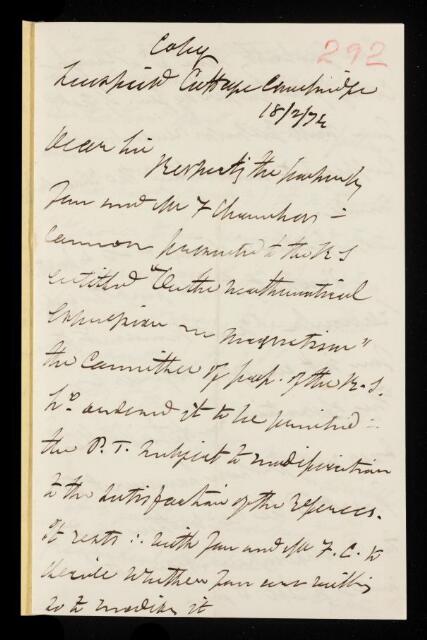 Copy
292
Lensfield Cottage Cambridge
18/2/74
Dear Sir
Respectg the paper by
you and Mr F Chambers in
common presented to the R S
entitled "On the mathematical
expression in magnetism"
the Committee of pap. of the R. S.
hd. ordered it to be printed in
the P. T. subject to modification
to the satisfaction of the Referees.
It rests ∴ with you and Mr F. C. to
decide whether you are willing
so to modify it